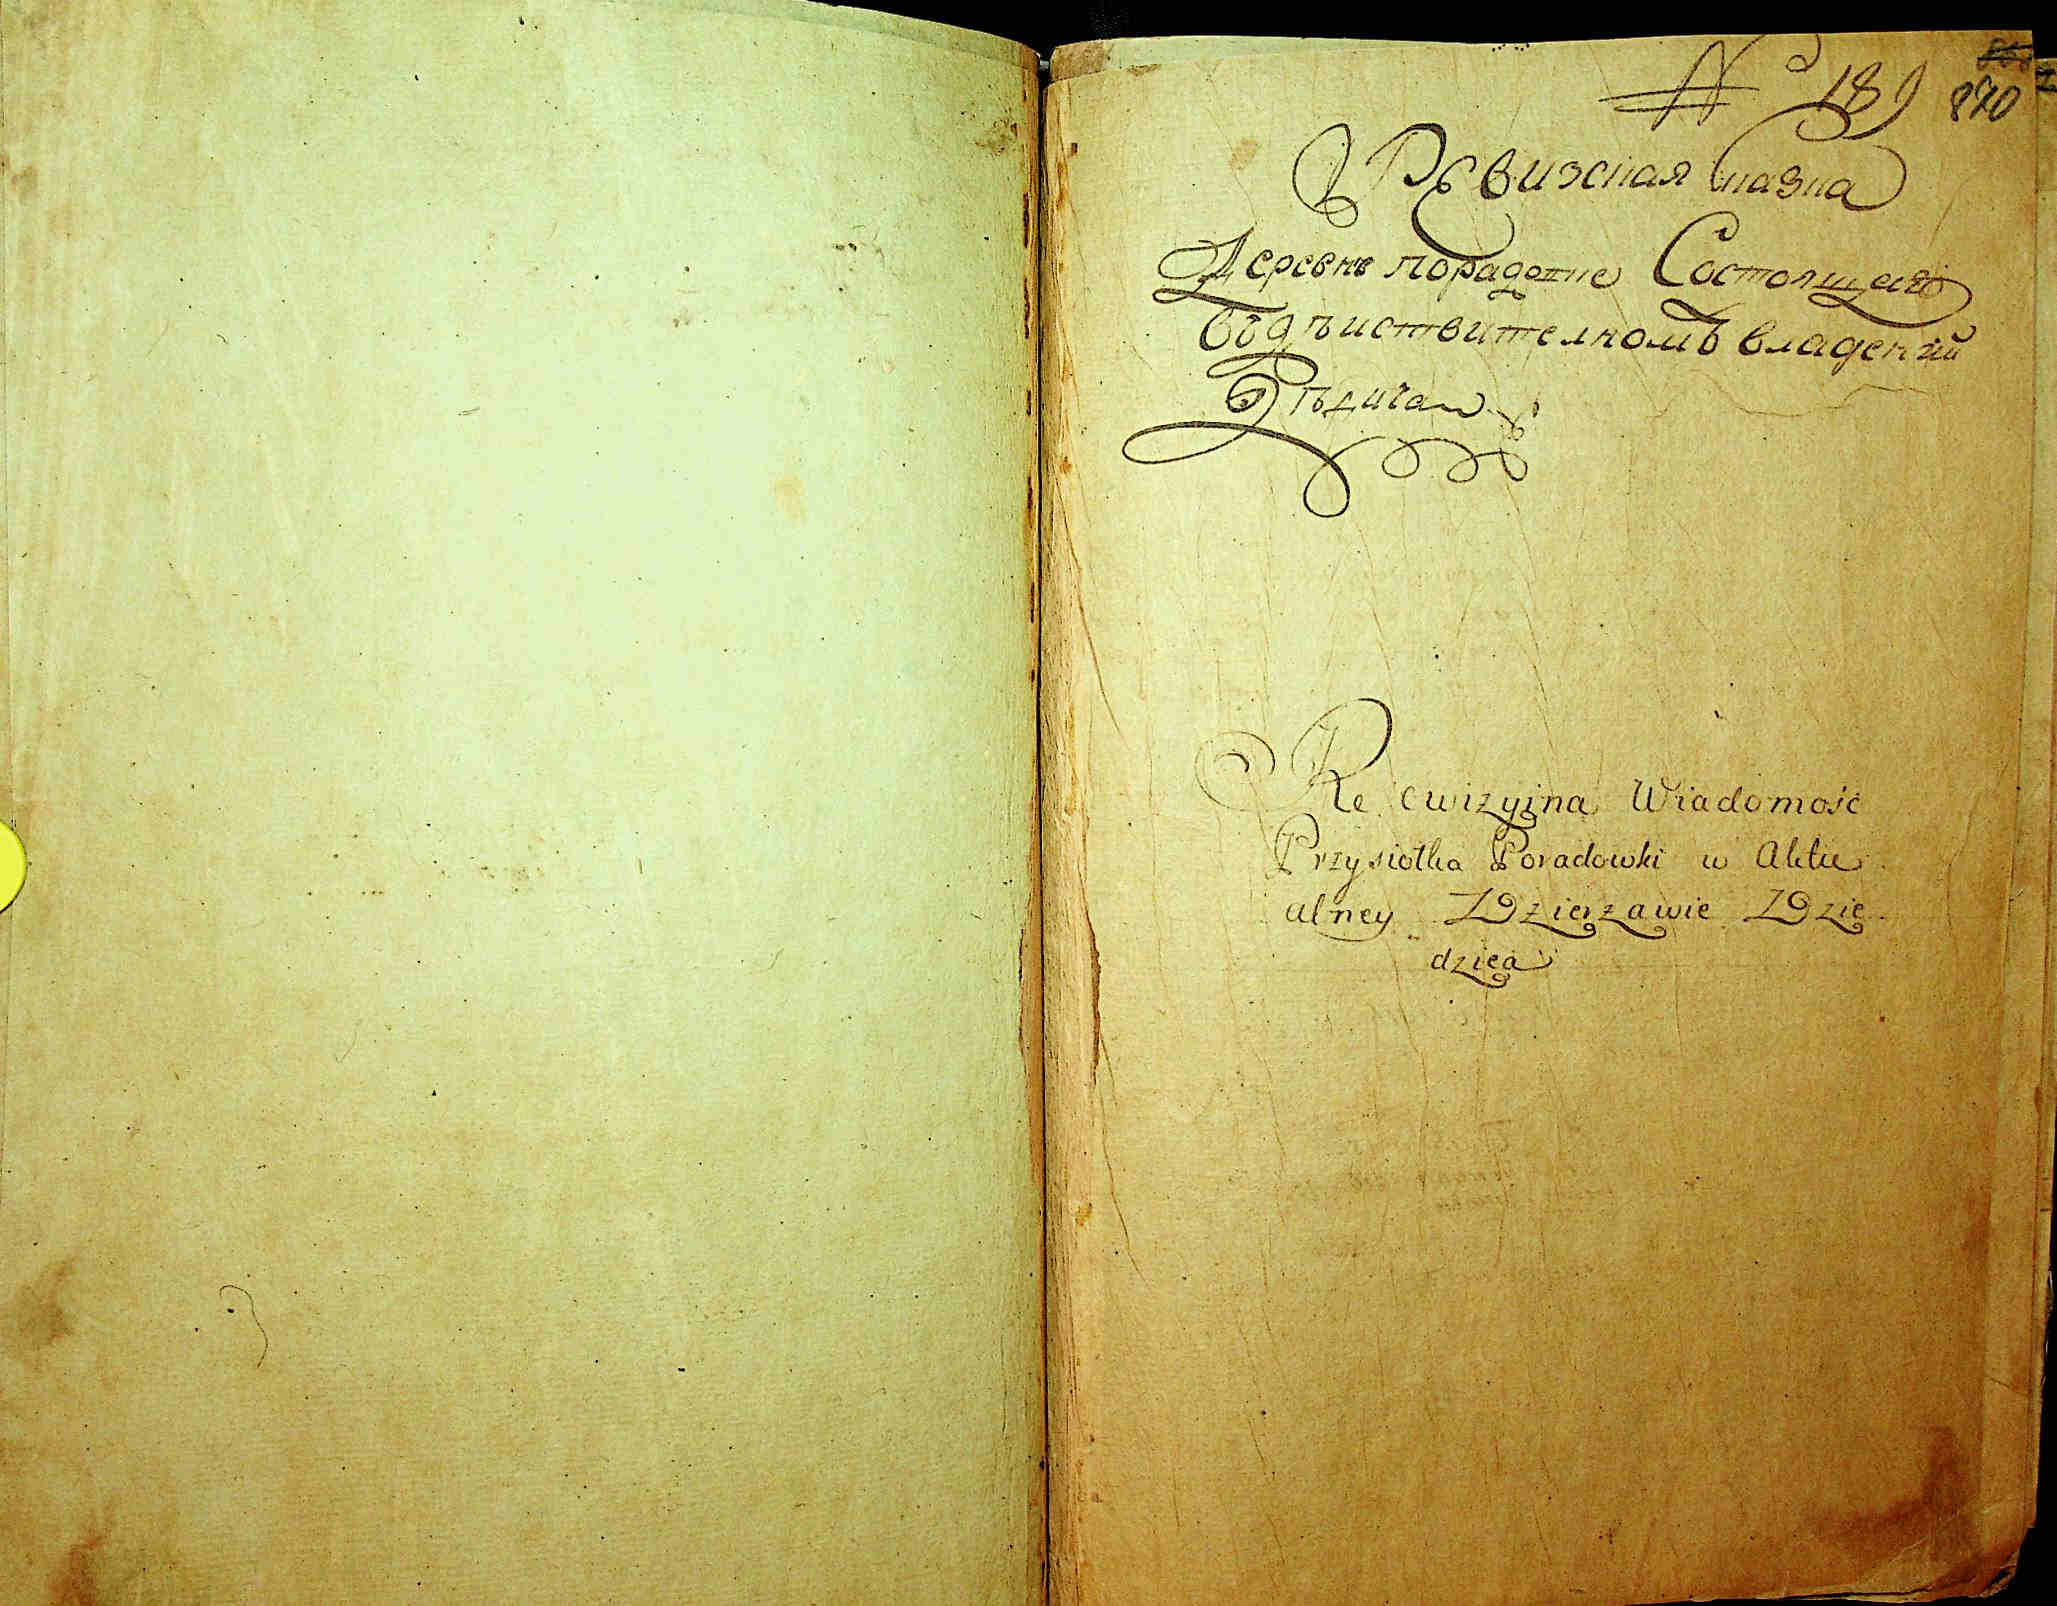 № 189
870
Ревизская сказка
Деревне Порадовке Состоящея
въ дѣиствителномъ владений
Дѣдича
Rewizyjna Wiadomość
Przysiołka Poradowki w Aktu
alney Dzierzawie Dzie
dzica